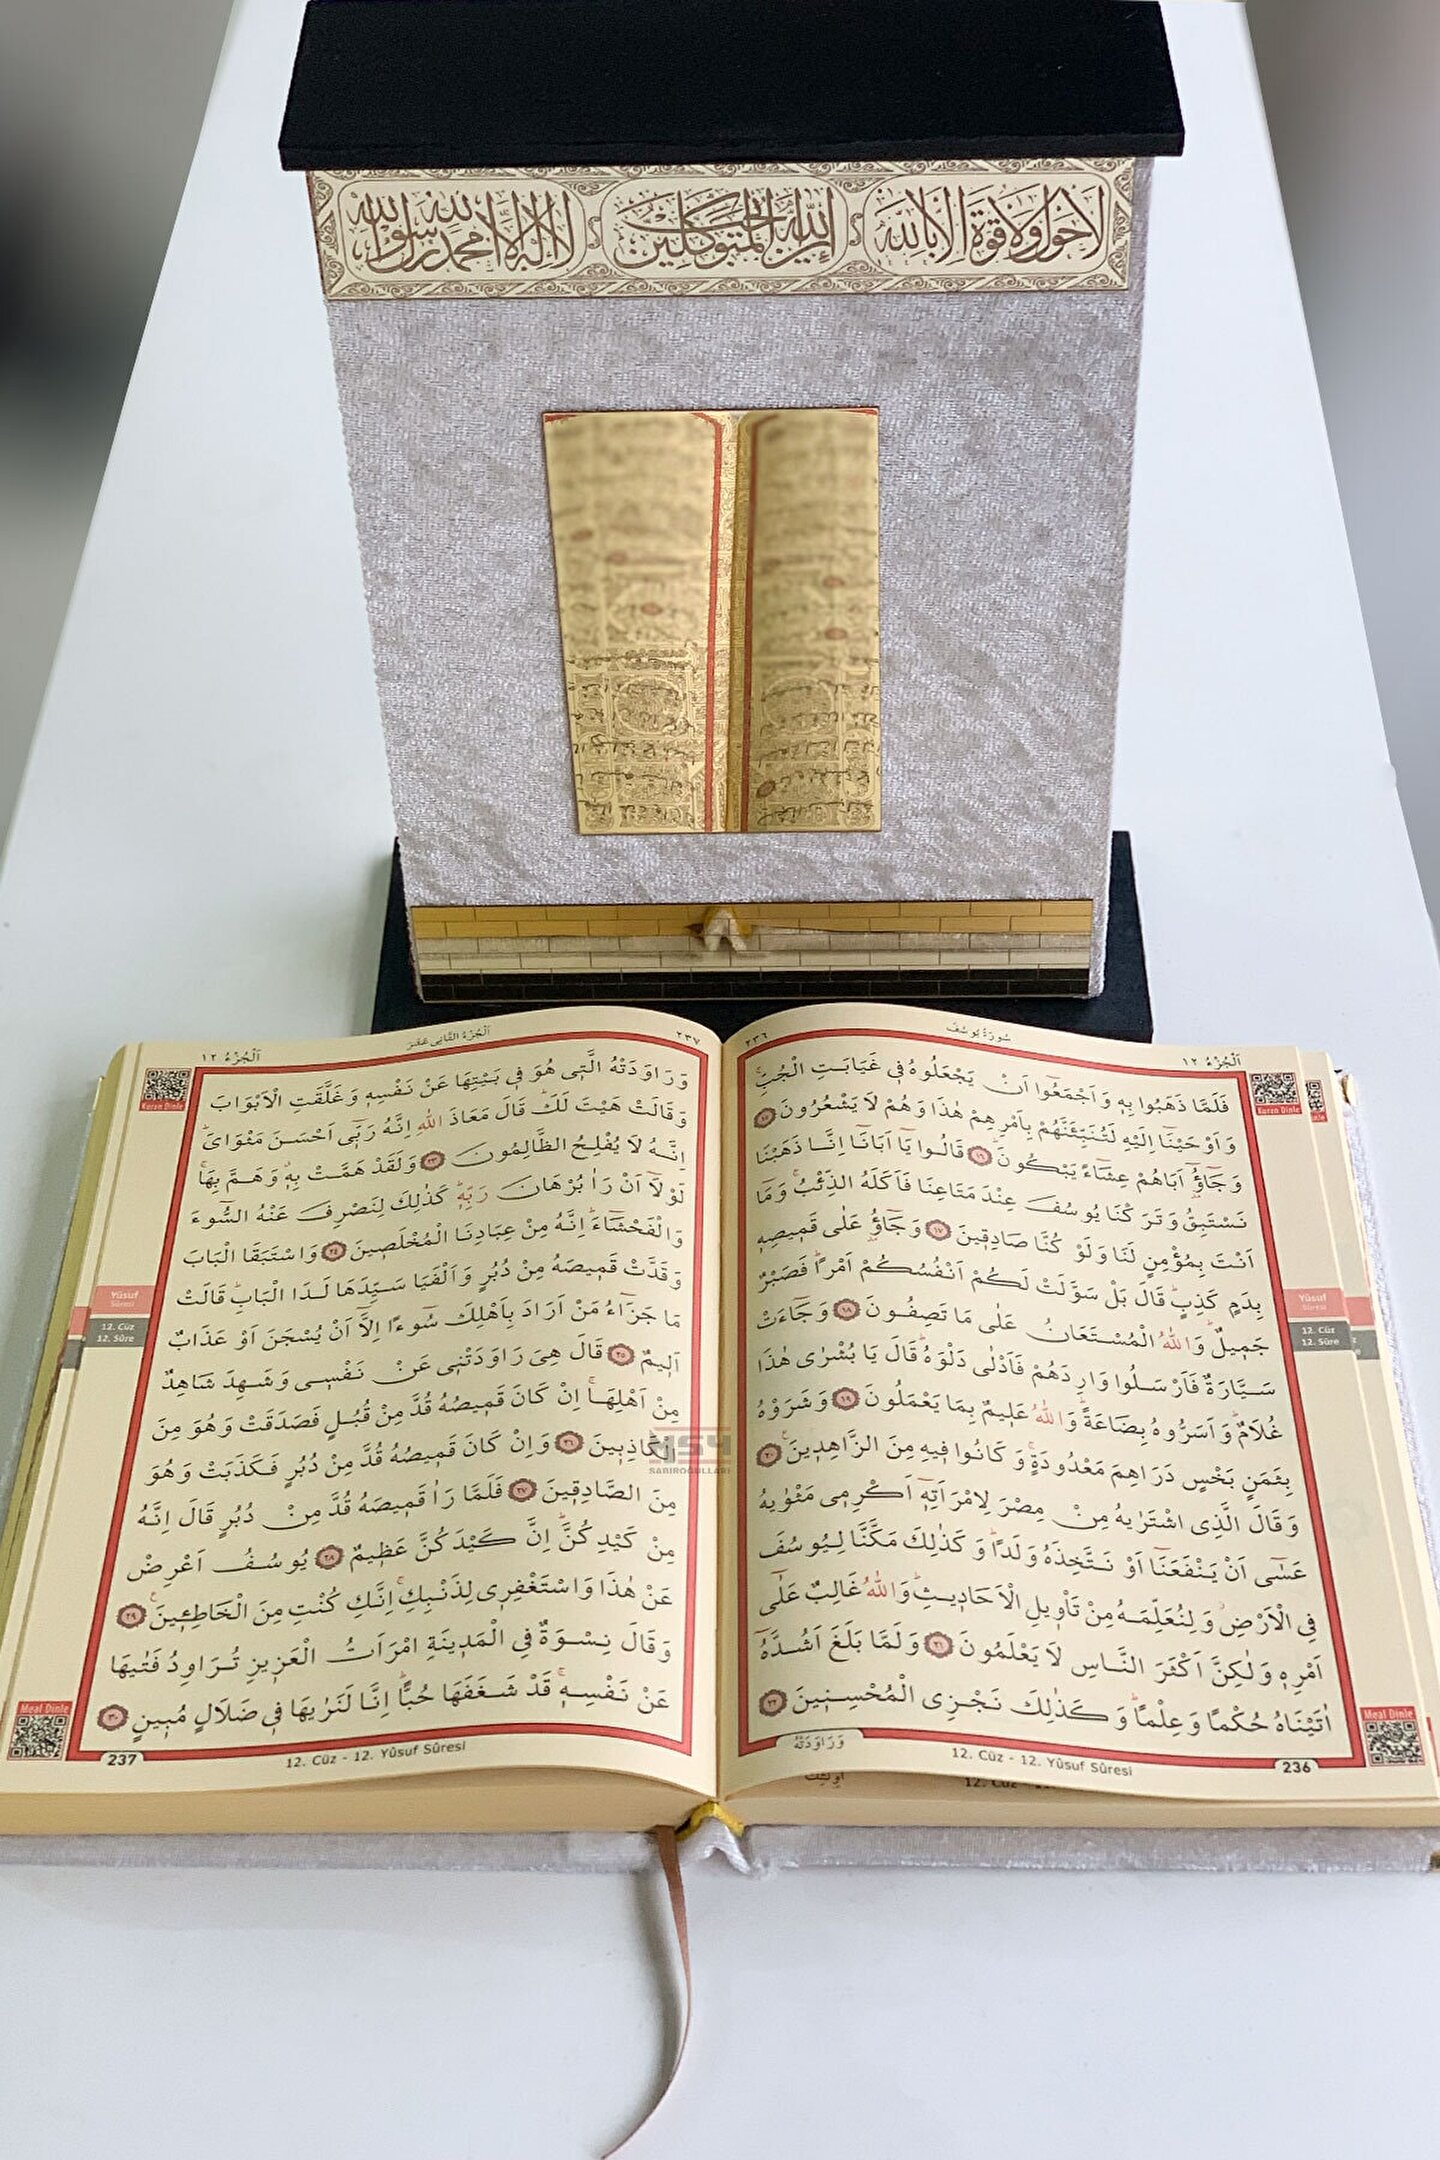 لا حول ولا قوة الا بالله
إن الله يحب المتوكلين
لا اله الا الله محمد رسول الله
اَلْجُزْءُ ١٢
سُورَةُ يُوسُفَ
٢٣٦
فَلَمَّا ذَهَبُوا بِهٖ وَاَجْمَعُٓوا اَنْ يَجْعَلُوهُ فٖي غَيَابَتِ الْجُبِّۚ
وَاَوْحَيْنَٓا اِلَيْهِ لَتُنَبِّئَنَّهُمْ بِاَمْرِهِمْ هٰذَا وَهُمْ لَا يَشْعُرُونَ ١٥
وَجَٓاؤُٓ اَبَاهُمْ عِشَٓاءً يَبْكُونَۜ ١٦ قَالُوا يَٓا اَبَانَٓا اِنَّا ذَهَبْنَا
نَسْتَبِقُ وَتَرَكْنَا يُوسُفَ عِنْدَ مَتَاعِنَا فَاَكَلَهُ الذِّئْبُۚ وَمَٓا
اَنْتَ بِمُؤْمِنٍ لَنَا وَلَوْ كُنَّا صَادِقٖينَ ١٧ وَجَٓاؤُ۫ عَلٰى قَمٖيصِهٖ
بِدَمٍ كَذِبٍۜ قَالَ بَلْ سَوَّلَتْ لَكُمْ اَنْفُسُكُمْ اَمْرًاۜ فَصَبْرٌ
جَمٖيلٌۜ وَاللّٰهُ الْمُسْتَعَانُ عَلٰى مَا تَصِفُونَ ١٨ وَجَٓاءَتْ
سَيَّارَةٌ فَاَرْسَلُوا وَارِدَهُمْ فَاَدْلٰى دَلْوَهُۜ قَالَ يَا بُشْرٰى هٰذَا
غُلَامٌۜ وَاَسَرُّوهُ بِضَاعَةًۜ وَاللّٰهُ عَلٖيمٌ بِمَا يَعْمَلُونَ ١٩ وَشَرَوْهُ
بِثَمَنٍ بَخْسٍ دَرَاهِمَ مَعْدُودَةٍۚ وَكَانُوا فٖيهِ مِنَ الزَّاهِدٖينَ۟ ٢٠
وَقَالَ الَّذِى اشْتَرٰيهُ مِنْ مِصْرَ لِامْرَاَتِهٖٓ اَكْرِمٖى مَثْوٰيهُ
عَسٰٓى اَنْ يَنْفَعَنَٓا اَوْ نَتَّخِذَهُ وَلَدًاۜ وَكَذٰلِكَ مَكَّنَّا لِيُوسُفَ
فِى الْاَرْضِۘ وَلِنُعَلِّمَهُ مِنْ تَأْوٖيلِ الْاَحَادٖيثِۜ وَاللّٰهُ غَالِبٌ عَلٰٓى
اَمْرِهٖ وَلٰكِنَّ اَكْثَرَ النَّاسِ لَا يَعْلَمُونَ ٢١ وَلَمَّا بَلَغَ اَشُدَّهُٓ
اٰتَيْنَاهُ حُكْمًا وَعِلْمًاۜ وَكَذٰلِكَ نَجْزِى الْمُحْسِنٖينَ ٢٢
وَرَاوَدَتْهُ
12. Cüz - 12. Yûsuf Sûresi
236
Kuran Dinle
Yûsuf
Sûresi
12. Cüz
12. Sûre
Meal Dinle
٢٣٧
اَلْجُزْءُ الثَّانٖى عَشَرَ
اَلْجُزْءُ ١٢
وَرَاوَدَتْهُ الَّتٖى هُوَ فٖى بَيْتِهَا عَنْ نَفْسِهٖ وَغَلَّقَتِ الْاَبْوَابَ
وَقَالَتْ هَيْتَ لَكَۜ قَالَ مَعَاذَ اللّٰهِ اِنَّهُ رَبّٖٓى اَحْسَنَ مَثْوَايَۜ
اِنَّهُ لَا يُفْلِحُ الظَّالِمُونَ ٢٣ وَلَقَدْ هَمَّتْ بِهٖۚ وَهَمَّ بِهَاۚ
لَوْلَٓا اَنْ رَاٰ بُرْهَانَ رَبِّهٖۜ كَذٰلِكَ لِنَصْرِفَ عَنْهُ السُّٓوءَ
وَالْفَحْشَٓاءَۜ اِنَّهُ مِنْ عِبَادِنَا الْمُخْلَصٖينَ ٢٤ وَاسْتَبَقَا الْبَابَ
وَقَدَّتْ قَمٖيصَهُ مِنْ دُبُرٍ وَاَلْفَيَا سَيِّدَهَا لَدَا الْبَابِۜ قَالَتْ
مَا جَزَٓاءُ مَنْ اَرَادَ بِاَهْلِكَ سُٓوءًا اِلَّٓا اَنْ يُسْجَنَ اَوْ عَذَابٌ
اَلٖيمٌ ٢٥ قَالَ هِىَ رَاوَدَتْنٖى عَنْ نَفْسٖى وَشَهِدَ شَاهِدٌ
مِنْ اَهْلِهَاۚ اِنْ كَانَ قَمٖيصُهُ قُدَّ مِنْ قُبُلٍ فَصَدَقَتْ وَهُوَ مِنَ
الْكَاذِبٖينَ ٢٦ وَاِنْ كَانَ قَمٖيصُهُ قُدَّ مِنْ دُبُرٍ فَكَذَبَتْ وَهُوَ
مِنَ الصَّادِقٖينَ ٢٧ فَلَمَّا رَاٰ قَمٖيصَهُ قُدَّ مِنْ دُبُرٍ قَالَ اِنَّهُ
مِنْ كَيْدِكُنَّۜ اِنَّ كَيْدَكُنَّ عَظٖيمٌ ٢٨ يُوسُفُ اَعْرِضْ
عَنْ هٰذَا وَاسْتَغْفِرٖى لِذَنْبِكِۚ اِنَّكِ كُنْتِ مِنَ الْخَاطِـٖٔينَ۟ ٢٩
وَقَالَ نِسْوَةٌ فِى الْمَدٖينَةِ امْرَاَتُ الْعَزٖيزِ تُرَاوِدُ فَتٰيهَا
عَنْ نَفْسِهٖۚ قَدْ شَغَفَهَا حُبًّاۜ اِنَّا لَنَرٰيهَا فٖى ضَلَالٍ مُبٖينٍ ٣٠
237
12. Cüz - 12. Yûsuf Sûresi
Kuran Dinle
Yûsuf
Sûresi
12. Cüz
12. Sûre
Meal Dinle
HSY
SABIROĞULLARI